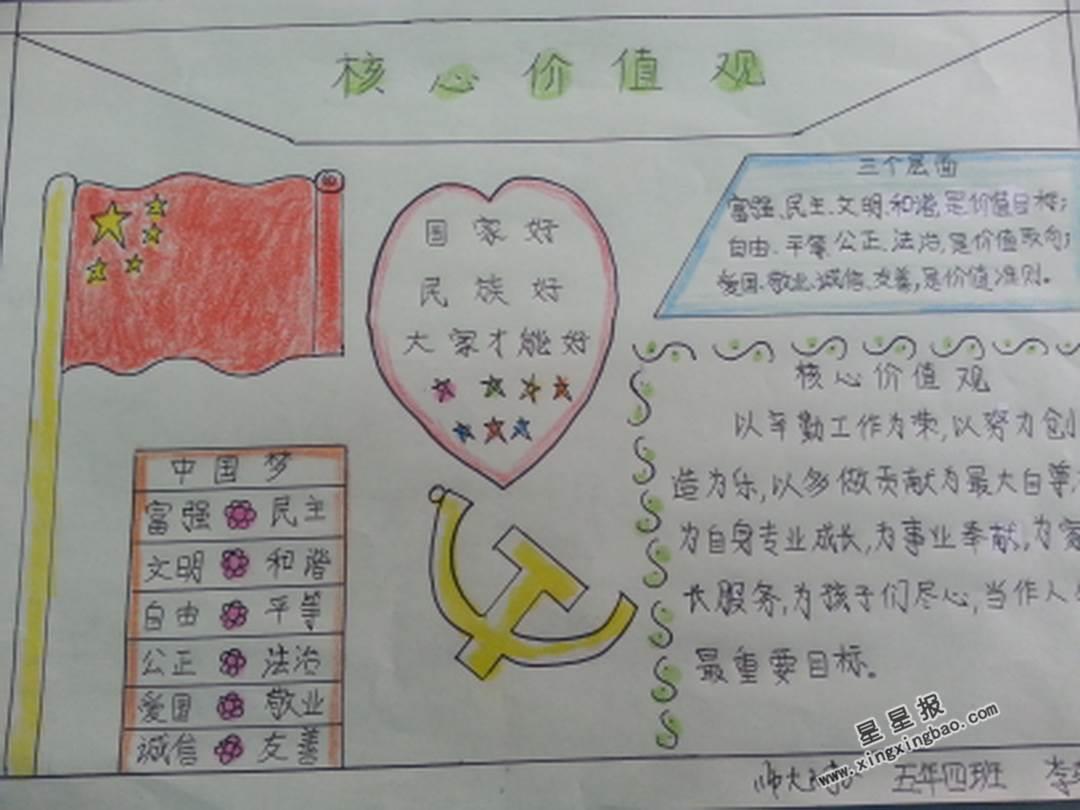 核心价值观
国家好
民族好
大家才能好
三个层面
富强、民主、文明、和谐,是价值目标;
自由、平等、公正、法治,是价值取向;
爱国、敬业、诚信、友善,是价值准则。
中国梦
富强 民主
文明 和谐
自由 平等
公正 法治
爱国 敬业
诚信 友善
核心价值观
以辛勤工作为荣,以努力创
造为乐,以多做贡献为最大自尊,
为自身专业成长,为事业奉献,为家
长服务,为孩子们尽心,当作人
最重要目标。
五年四班 李
星星报
www.xingxingbao.com